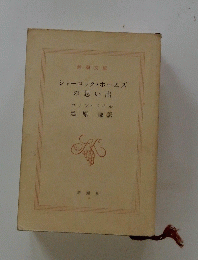 新潮文庫
シャーロック・ホームズ
の思い出
延原 謙訳
新潮社